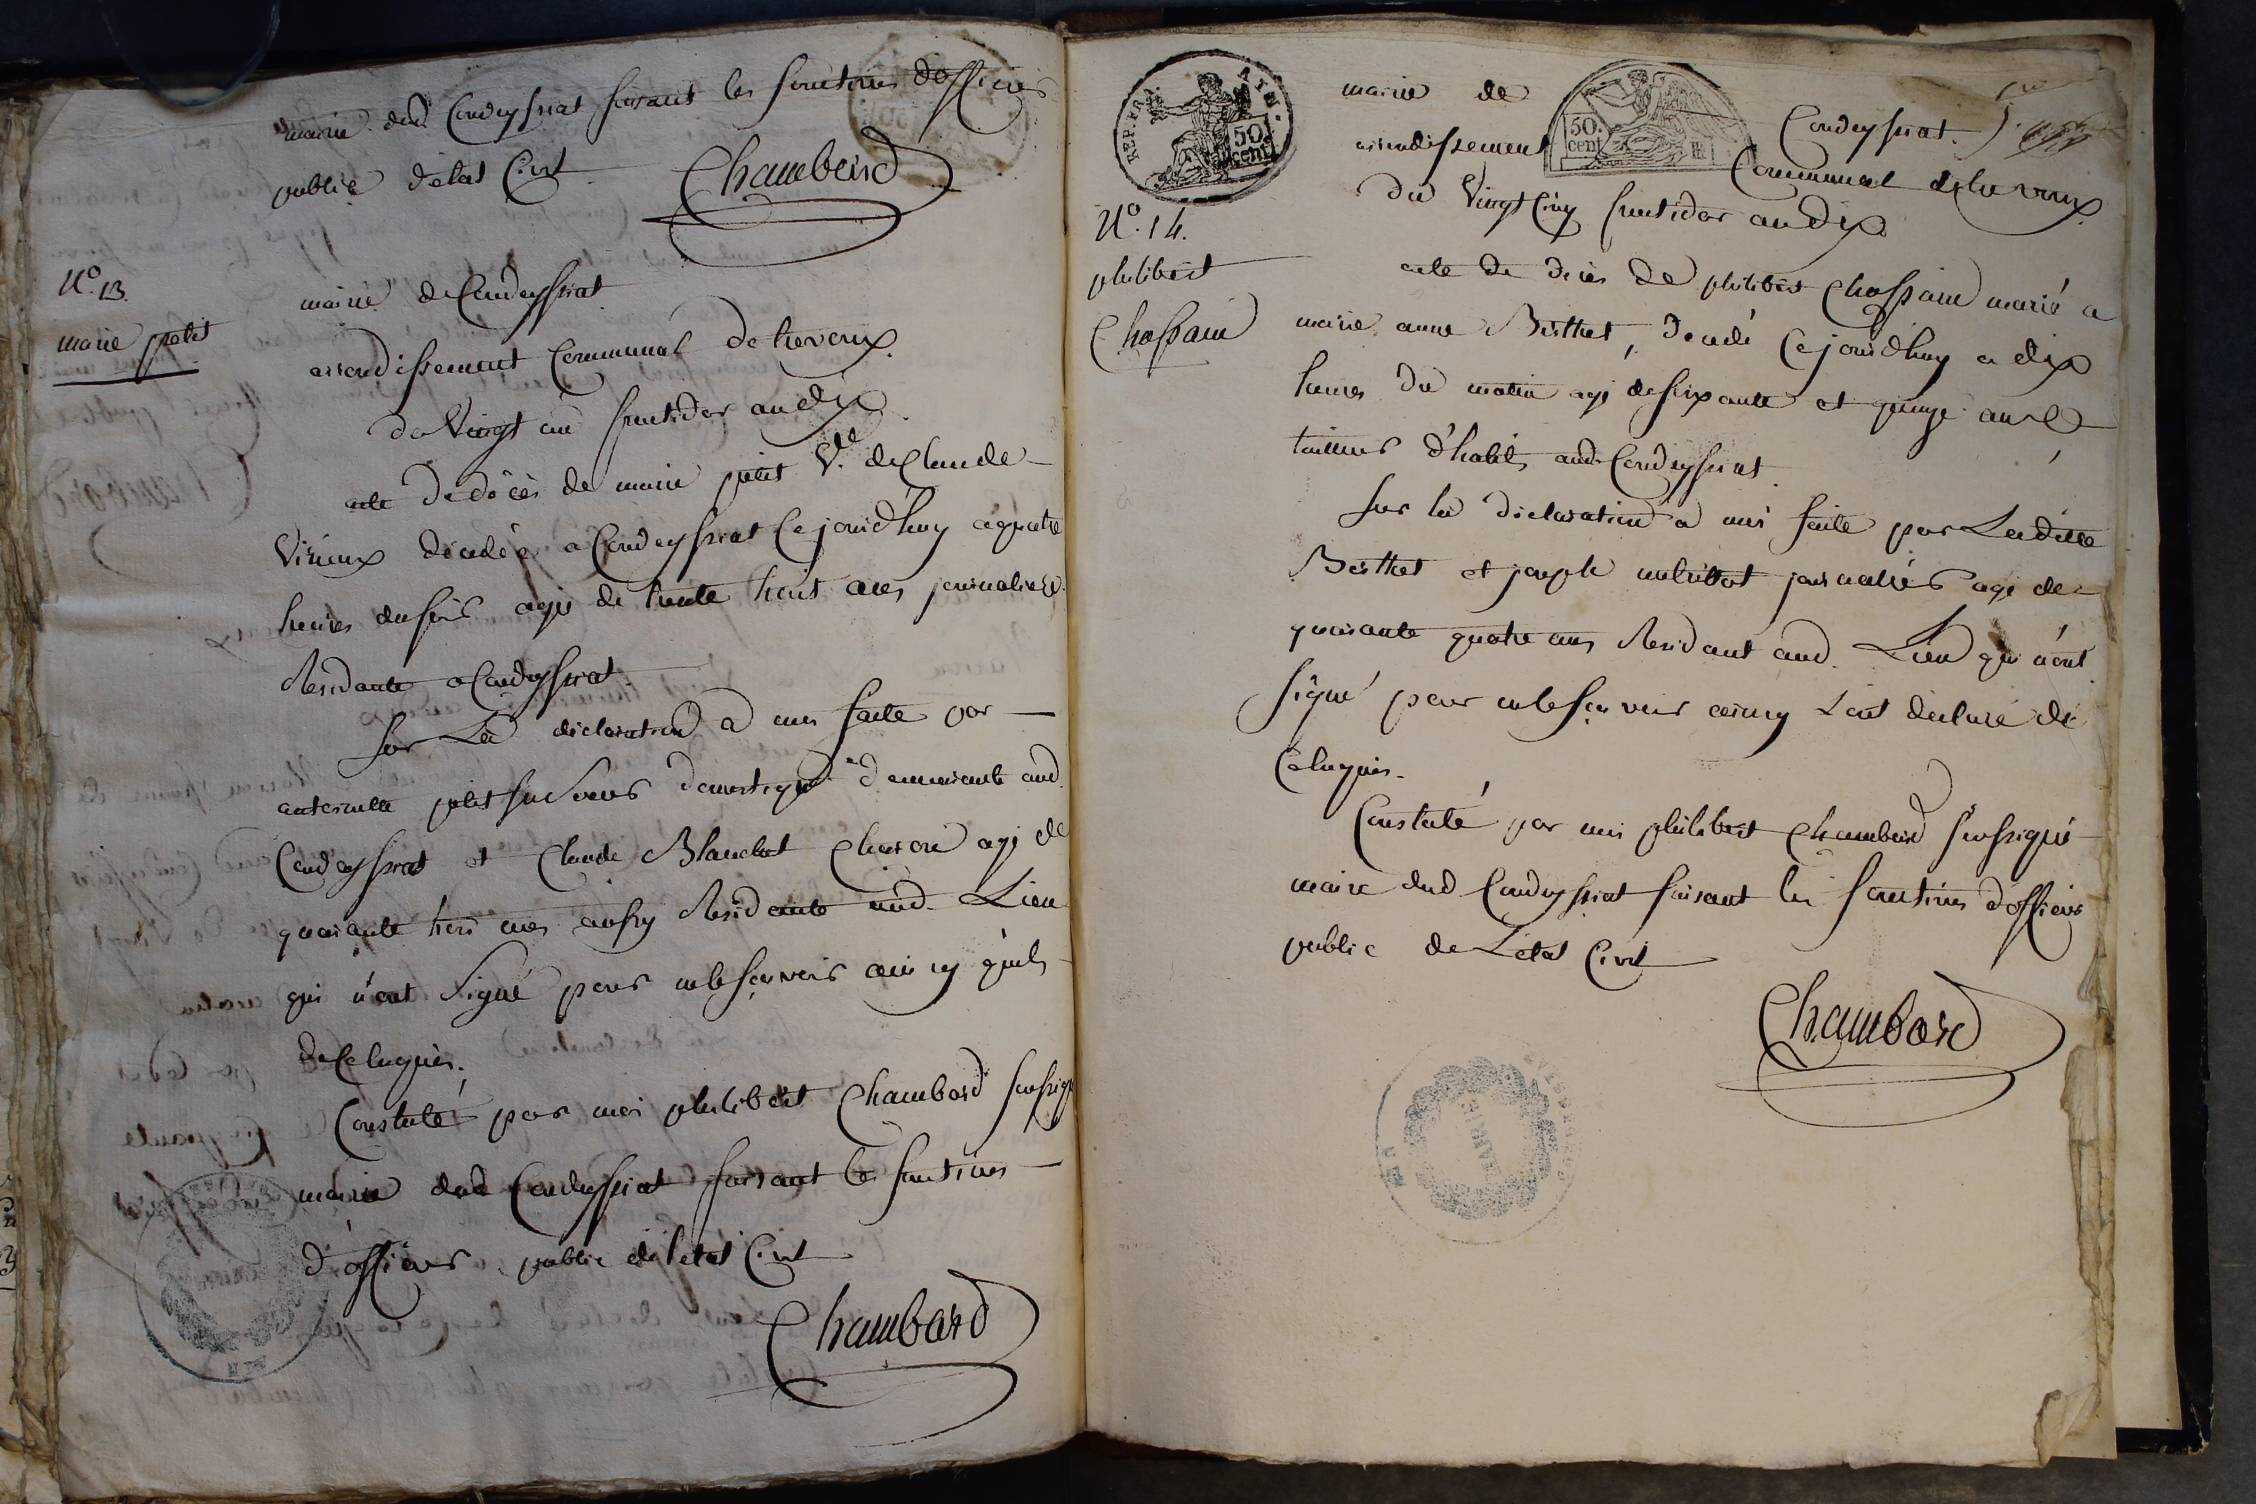 maire dud Condeyssiat faisant les fonctions dofficier
public d'état Civil
Chambard
N.º 13.
marie petit
mairie de Condeyssiat
arrondissement Communal de trevoux
du Vingt un fructidor an dix
acte de décès de marie petit V.e de Claude
Virieux décédée a Condeyssiat Cejourd'huy a quatre
heures du soir agé de trente huit ans journaliere
Residante a Condeyssiat
sur La déclaration a moi faite par
antoinette petit sa soeur domestique demeurante aud.
Condeyssiat et Claude Blanchet Charon agé de
quarante trois ans aussy Residante aud. Lieu
qui n'ont signé pour nele sçavoir ainsy quils
de Ce Enquis.
Constaté par moi philibert Chambard soussigné
maire dud Condeyssiat faisant les fonctions
d'officier public de l'état Civil
Chambard
REP. FRA. AIN. 50 cent
50. cent
N.º 14.
philibert
Chossain
mairie de Condeyssiat.
arrondissement Communal de trevoux
du Vingt Cinq fructidor an dix
acte de décès de philibert Chossain marié a
marie anne Berthet, décédé Cejourd'huy a dix
heures du matin agé de soixante et quinze ans
tailleur d'habits aud. Condeyssiat
sur la déclaration a moi faite par Laditte
Berthet et joseph journalier agé de
quarante quatre ans Residant aud. Lieu qui n'ont
signé pour nele sçavoir ainsy L'ont déclaré de
Ce Enquis.
Constaté par moi philibert Chambard soussigné
maire dud Condeyssiat faisant les fonctions d'officier
public de L'état Civil
Chambard
MAIRIE